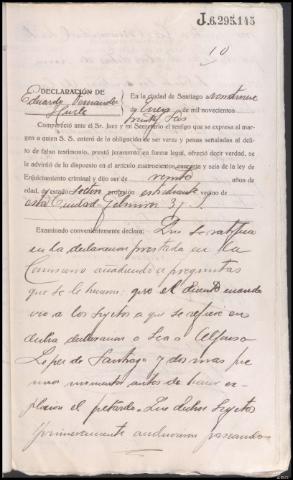 J.6.295.145
10
DECLARACIÓN DE
Eduardo Fernandez
En la ciudad de Santiago a veintinueve
y Enero de mil novecientos
treinta y seis
Compareció ante el Sr. Juez y mi Secretario el testigo que se expresa al mar-
gen a quien S. S. enteró de la obligación de ser veraz y penas señaladas al deli-
to de falso testimonio, prestó juramento en forma legal, ofreció decir verdad, se
le advirtió de lo dispuesto en el artículo cuatrocientos cuarenta y seis de la ley de
Enjuiciamiento criminal y dijo ser de veinte años de
edad, de estado soltero profesión estudiante vecino de
esta Ciudad
Examinado convenientemente declara: Que se ratifica
en la declaracion prestada en la
Comisaria añadiendo a preguntas
que se le hicieron: que el dicente cuando
vio a los sujetos a que se refiere en
dicha declaracion o sea a Alfonso
Lopez de Santiago y dos mas fue
unos momentos antes de hacer ex-
plosion el petardo. Que dichos sujetos
primeramente anduvieron paseando